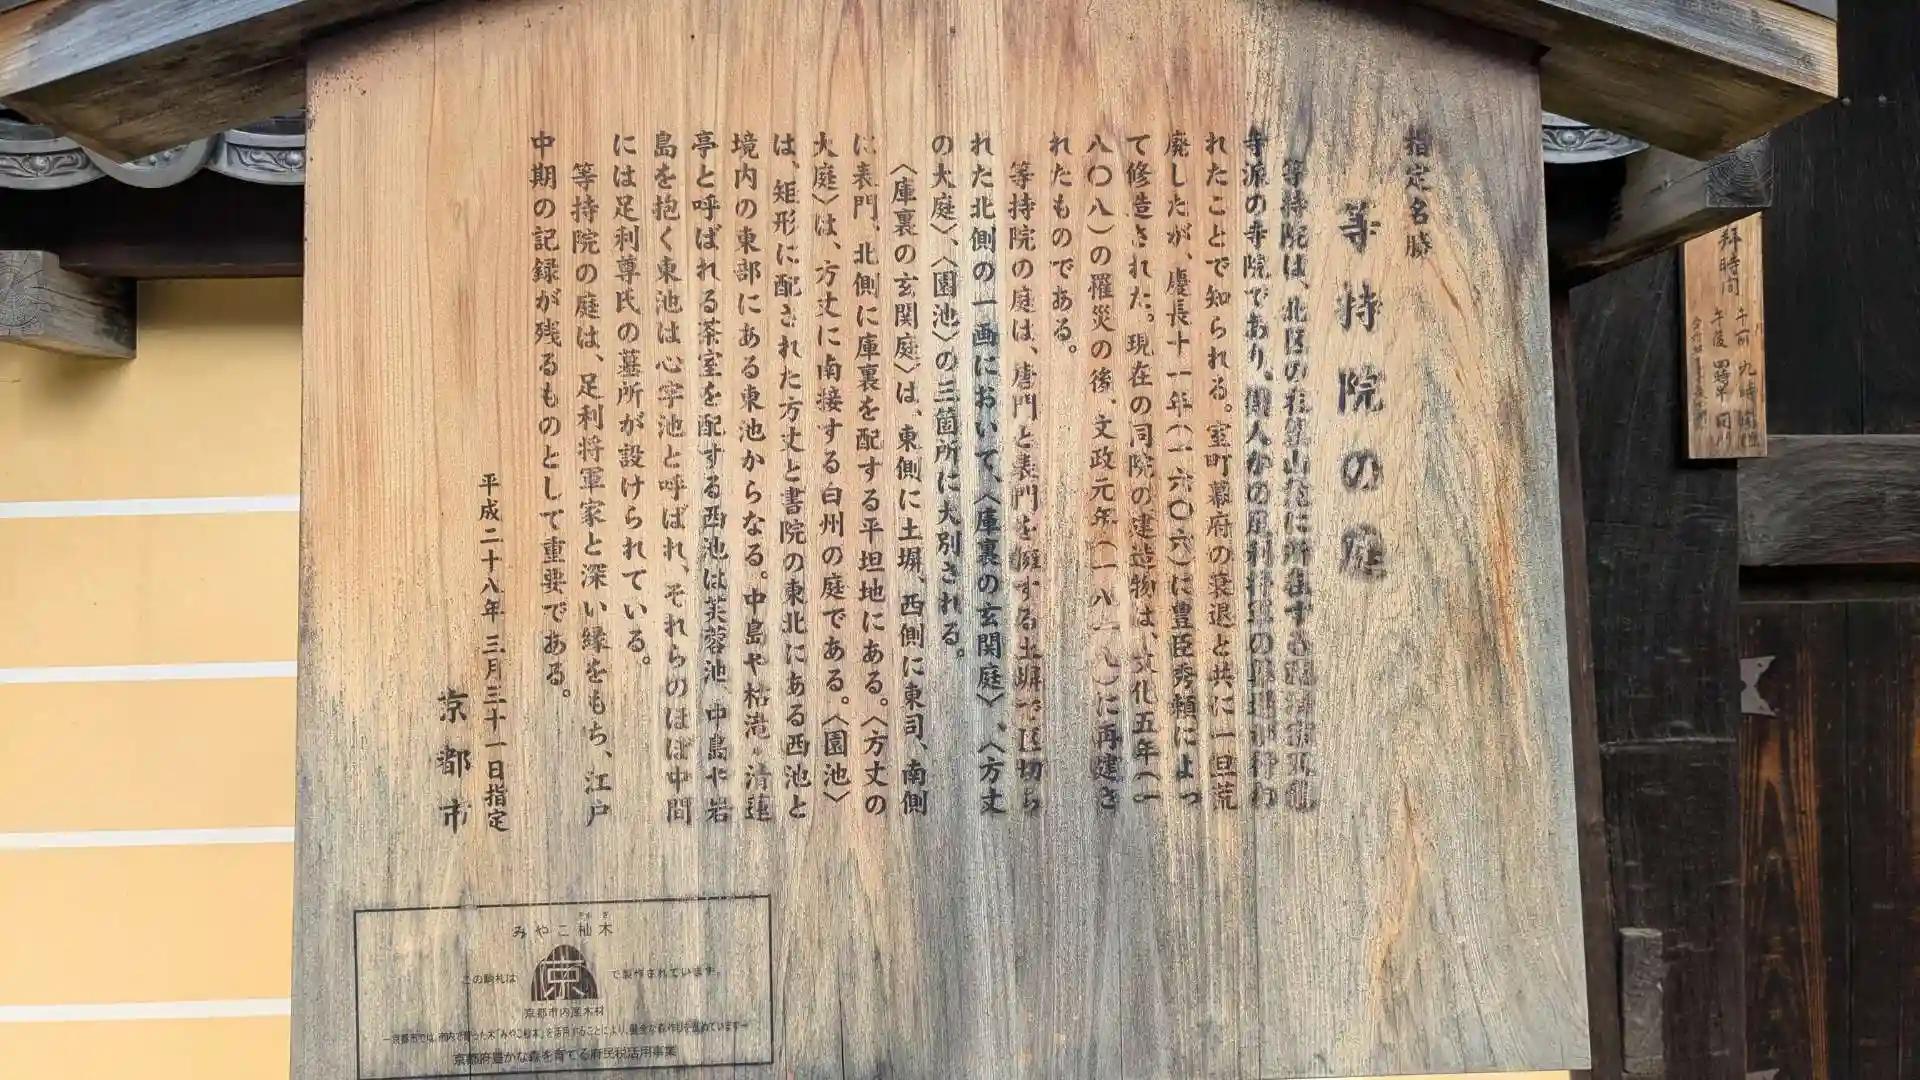 指定名勝
等持院の庭
等持院は、北区の衣笠山麓に所在する臨済宗天龍
寺派の寺院であり、歴人かの足利将軍の
れたことで知られる。室町幕府の衰退と共に一旦荒
廃したが、慶長十一年(一六〇六)に豊臣秀頼によっ
て修造された。現在の同院の建造物は、文化五年(一
八〇八)の罹災の後、文政元年(一八一八)に再建さ
れたものである。
等持院の庭は、唐門と表門を擁する土塀で区切ら
れた北側の一画において、〈庫裏の玄関庭〉、〈方丈
の大庭〉、〈園池〉の三箇所に大別される。
〈庫裏の玄関庭〉は、東側に土塀、西側に東司、南側
に表門、北側に庫裏を配する平坦地にある。〈方丈の
大庭〉は、方丈に南接する白州の庭である。〈園池〉
は、矩形に配された方丈と書院の東北にある西池と
境内の東部にある東池からなる。中島や枯滝、清漣
亭と呼ばれる茶室を配する西池は芙蓉池、中島や岩
島を抱く東池は心字池と呼ばれ、それらのほぼ中間
には足利尊氏の墓所が設けられている。
等持院の庭は、足利将軍家と深い縁をもち、江戸
中期の記録が残るものとして重要である。
平成二十八年三月三十一日指定
京都市
みやこ杣木
この駒札は
京
で製作されています。
京都市内産木材
京都府豊かな森を育てる府民税活用事業
拝時間
午前九時
午後四時半